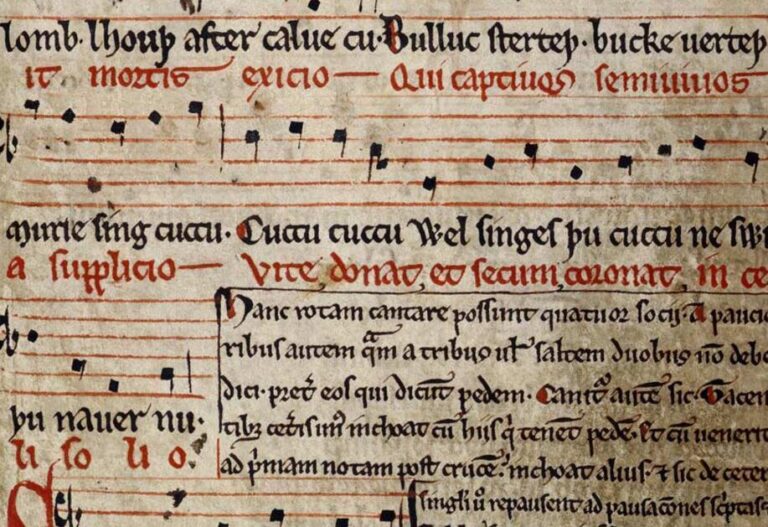 lomb · lhouþ after calue cu · Bulluc sterteþ · bucke uerteþ
it mortis exicio — Qui captiuos semiuiuos
murie sing cuccu · Cuccu cuccu Wel singes þu cuccu ne swi
a supplicio — Vite donat, et secum coronat, in ce
Hanc rotam cantare possunt quatuor socij · A paucio
ribus autem qͣm a tribus uł saltem duobus nō debe
dici · pret̄ eos qui dicūt pedem · Canitͬ autē sic · Tacen
þu nauer nu ·
tibꝫ cet̄is unꝰ inchoat cū hijs q̇ tenēt pedē · Et cū uenerit
li so li o.
ad p̄mam notam post crucē · inchoat alius · ⁊ sic de ceter
singli ů repausent ad pausacōnes scͥptas